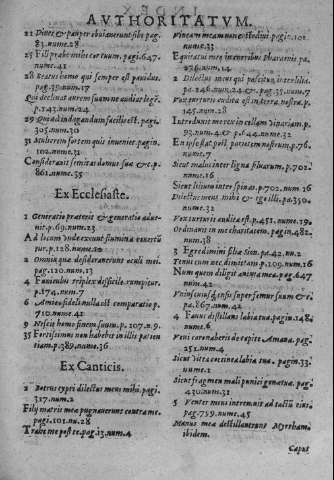 AVTHORITATVM.
22 Diues & pauper obuiauerunt sibi pag.
83. nume. 28
25 Fili præbe mihi cor tuum. pag. 647.
nume. 41
28 Beatus homo qui semper est pauidus.
pag. 35. num. 17
Qui declinat aurem suam ne audiat legē.
p. 142. num. 24
29 Quod indagandum facilis est. pag.
305. num. 30
31 Mulierem fortem quis inueniet pagin.
102. nume. 31
Considerauit semitas domus suæ &c. p.
861. nume. 35
Ex Ecclesiaste.
1 Generatio præterit & generatio adue-
nit. p. 69. num. 23
Ad locum vnde exeunt flumina reuertū
tur. p. 128. nume. 20
2 Omnia quæ desiderauerunt oculi mei.
pag. 120. num. 13
4 Funiculus triplex difficile rumpitur.
p. 174. num. 7
6 Amico fideli nulla est comparatio p.
710. nume. 42
9 Nescit homo finem suum. p. 107. n. 9.
35 Fortissimi non habebit in illis patien
tiam p. 389. nume. 36
Ex Canticis.
1 Botrus cypri dilectus meus mihi. pag.
317. num. 2
Filij matris meæ pugnauerunt contra me.
pag. 101. nu. 28
Trahe me post te. pag. 13. num. 4
Vineam meam non custodiui pagin. 101.
nume. 33
Equitatui meo in curribus Pharaonis pa.
276. num. 14
2 Dilectus meus qui pascitur inter lilia.
pa. 246. num. 24 & pag. 35. num. 7
Vox turturis audita est in terra nostra. p.
145. num. 28
Introduxit me rex in cellam vinariam. p.
93. num. 4. & p. 44. nume. 32
En ipse stat post parietem nostrum. p. 76.
nume. 7
Sicut malus inter ligna siluarum. p. 702.
num. 31
Sicut lilium inter spinas. p. 702. num. 26
Dilectus meus mihi & ego illi. pag. 350.
nume. 32
Vox turturis audita est. p. 451. nume. 19.
Ordinauit in me charitatem. pagin. 482.
num. 38
3 Egredimini filiæ Sion. pa. 42. nu. 2
Tenui eum nec dimittam. p. 109. num. 16
Num quem diligit anima mea. pag. 647
num. 42
Vniuersus quasi superferunt suum &c
pa. 867. num. 42
4 Fauus distillans labia tua. pagin. 148.
nume. 6
Veni coronaberis de capite Amana. pag.
251. num. 4
Sicut vitta coccinea labia tua. pagin. 33.
nume. 21
Sicut fragmen mali punici genæ tuæ. pag.
430. num. 31
5 Venter meus intremuit ad tactū eius.
pag. 759. nume. 45
Manus meæ destillauerunt Myrrham
ibidem.
Caput